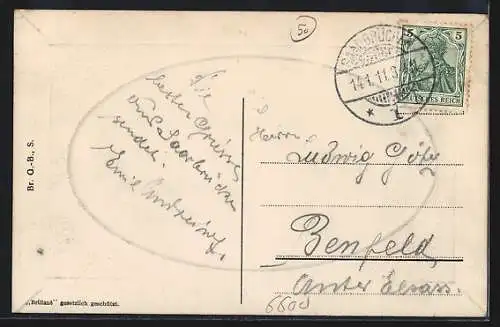 50
SAARBRÜCKEN
14.1.11.3
* 1
5 5
DEUTSCHES REICH
Die
besten Grüsse
aus Saarbrücken
sendet
Emil
Br. O.-B., S.
Herrn
Ludwig Götz
Benfeld,
Unter Elsass.
6600
„Brillant" gesetzlich geschützt.